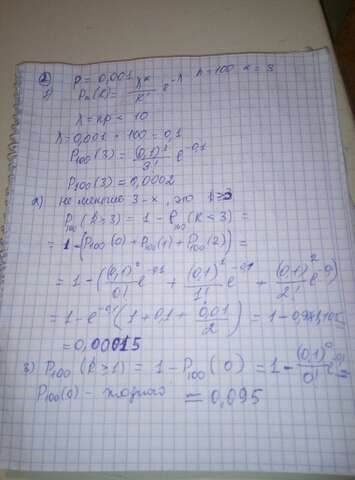 ② p = 0,001 n=100 k = 3
1) Pₙ(k) = λᵏ/k! e^-λ
λ = np < 10
λ = 0,001 · 100 = 0,1
P₁₀₀(3) = (0,1)³/3! e^-0,1
P₁₀₀(3) = 0,0002
2) не меньше 3-х, это k≥3
P₁₀₀(k≥3) = 1 - P₁₀₀(k<3) =
= 1-(P₁₀₀(0) + P₁₀₀(1) + P₁₀₀(2)) =
= 1-((0,1)⁰/0! e^-0,1 + (0,1)¹/1! e^-0,1 + (0,1)²/2! e^-0,1)
= 1 - e^-0,1 (1 + 0,1 + 0,01/2) = 1 -
= 0,00015
3) P₁₀₀(k≥1) = 1 - P₁₀₀(0) = 1 - (0,1)⁰/0! e^-0,1 =
P₁₀₀(0) - = 0,095